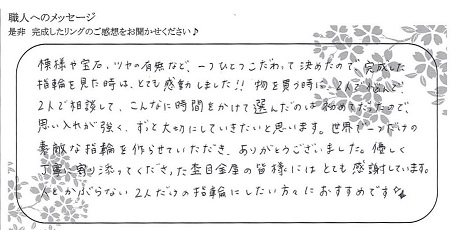 職人へのメッセージ
是非 完成したリングのご感想をお聞かせください♪
模様や宝石、ツヤの有無など、一つひとつこだわって決めたので、完成した
指輪を見た時は、とても感動しました!! 物を買う時に、2人で悩んで、
2人で相談して、こんなに時間をかけて選んだのは初めてだったので、
思い入れが強く、ずっと大切にしていきたいと思います。世界で一つだけの
素敵な指輪を作らせていただき、ありがとうございました。優しく
丁寧に寄り添ってくださった杢目金屋の皆様にはとても感謝しています。
人とかぶらない2人だけの指輪にしたい方々におすすめです